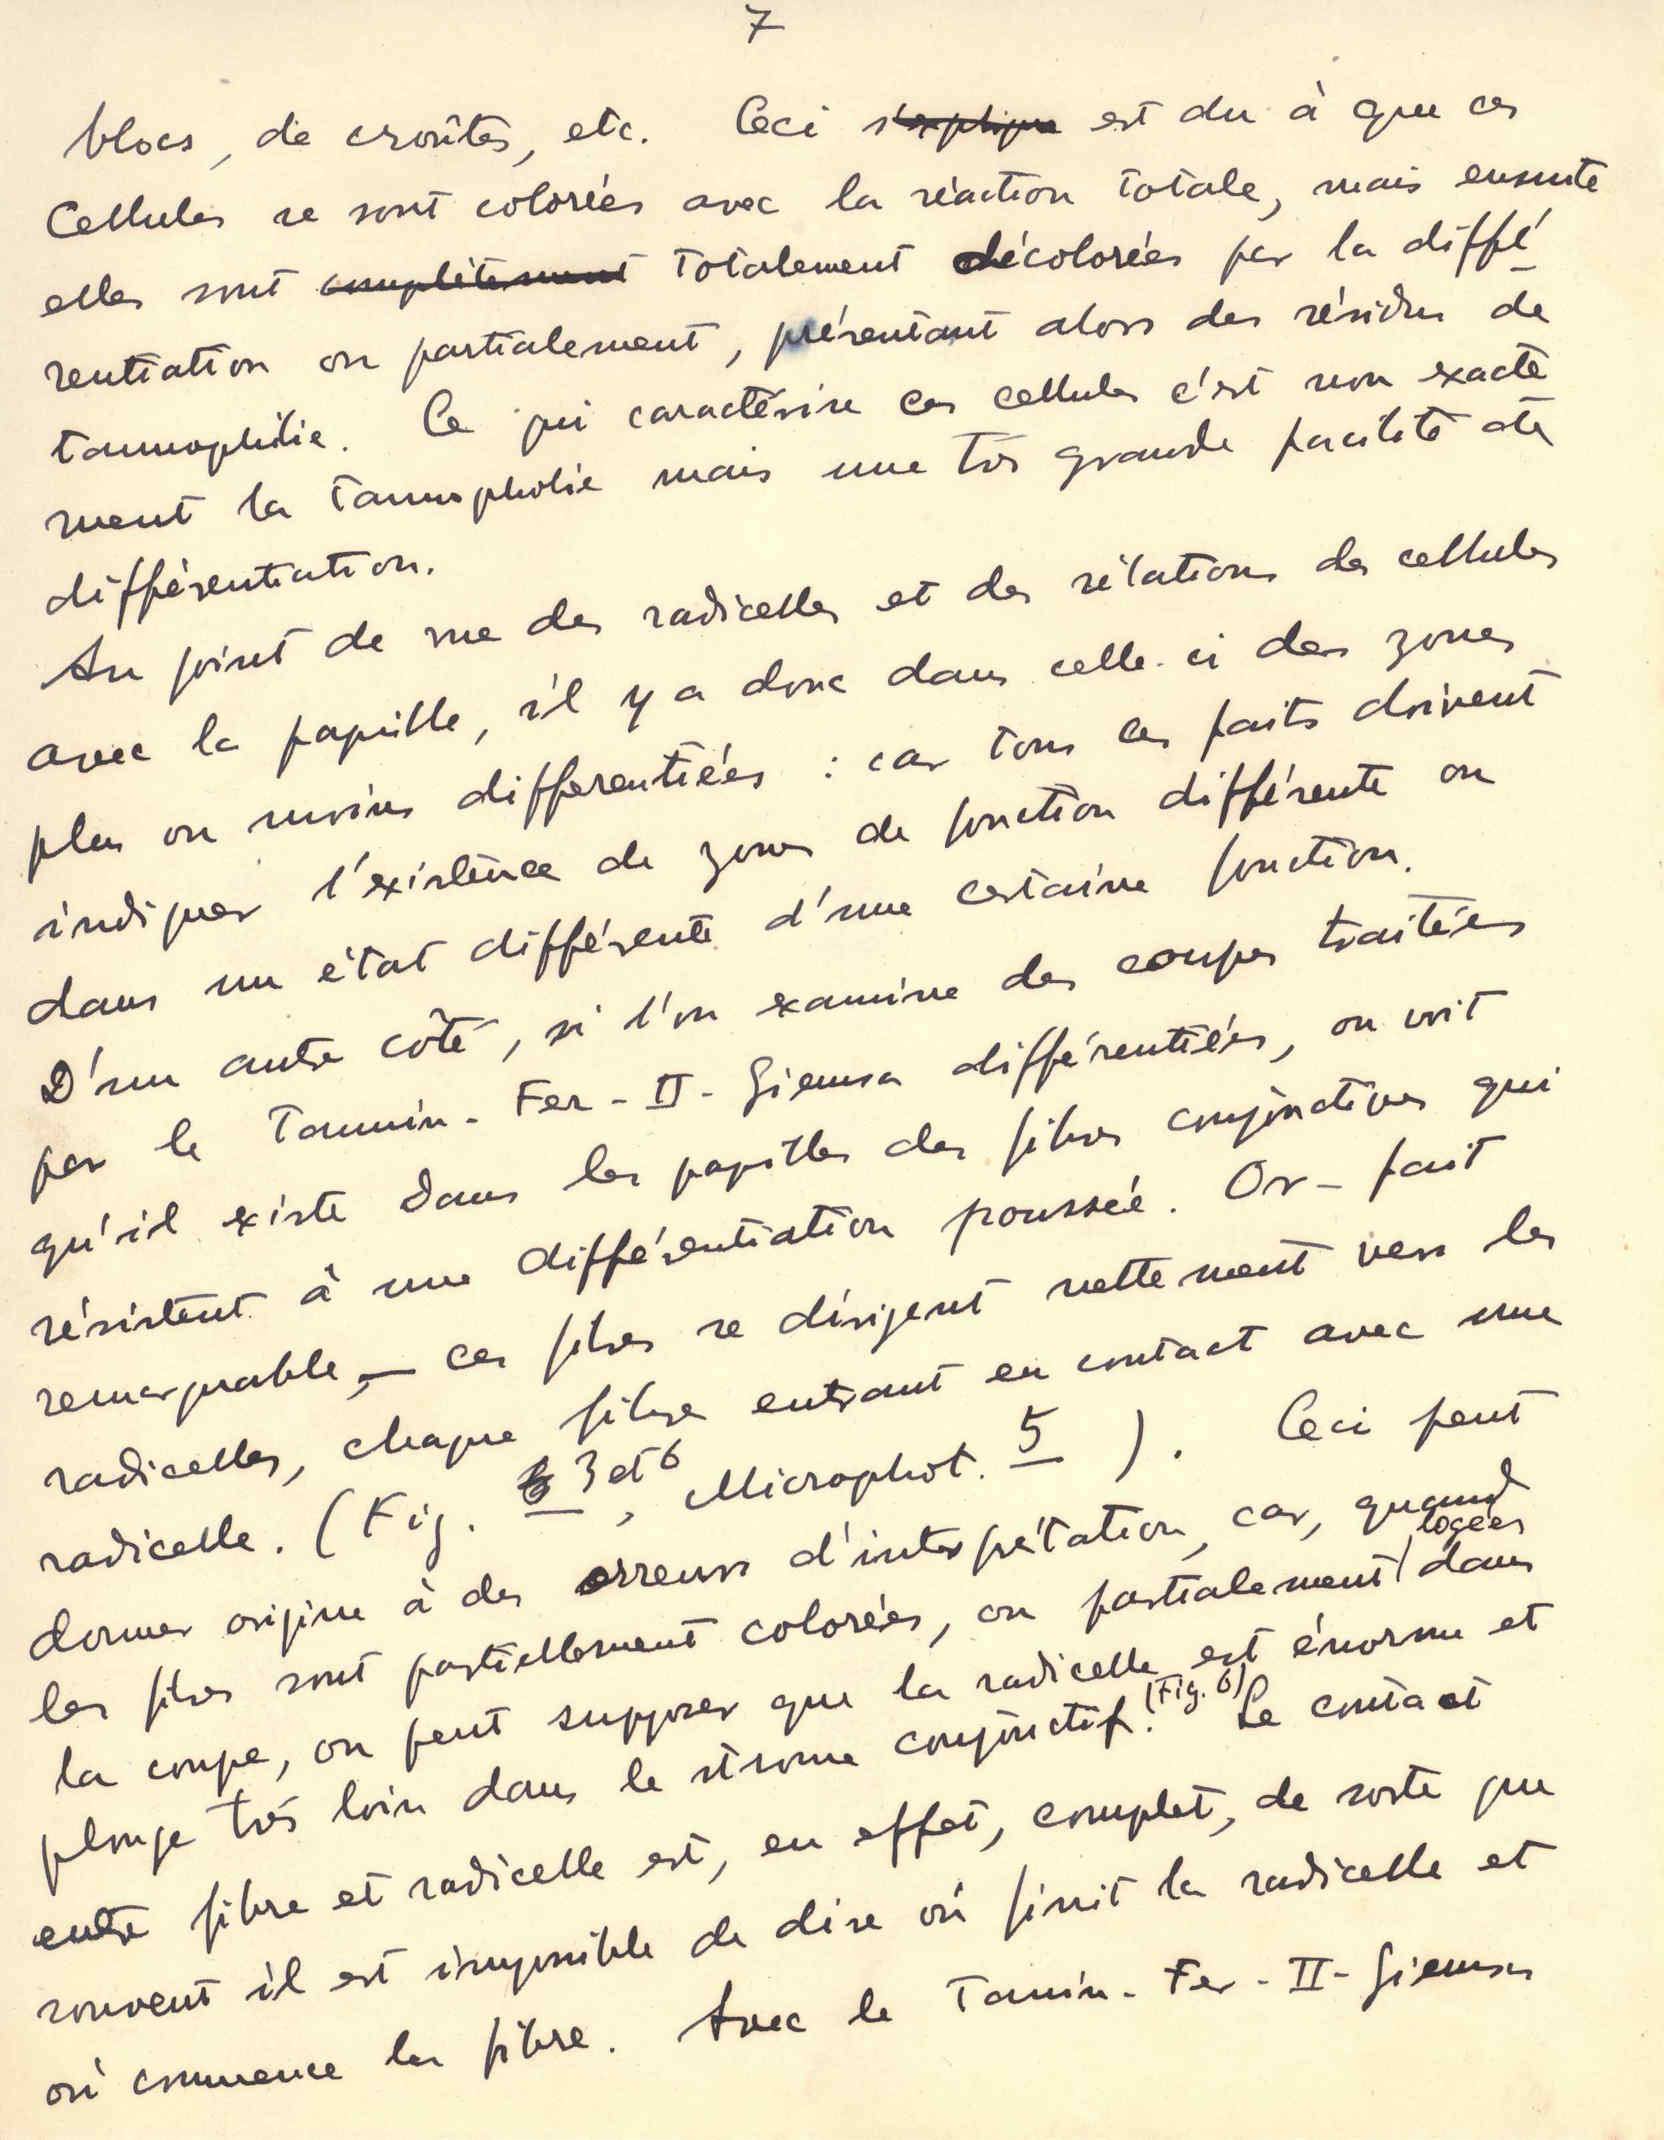 7
blocs, de croûtes, etc. Ceci s'explique est du à que ces
Cellules se sont colorées avec la réaction totale, mais ensuite
elles sont complètement totalement décolorées par la diffé
rentiation ou partialement, présentant alors des résidus de
tannophilie. Ce qui caractérise ces cellules c'est non exacte
ment la tannopholie mais une très grande facilité de
différentiation.
Au point de vue des radicelles et des rélations des cellules
avec la papille, il y a donc dans celle-ci des zones
plus ou moins differentiées : car tous ces faits doivent
indiquer l'existence de zones de fonction différente ou
dans un état différente d'une certaine fonction.
D'un autre côté, si l'on examine des coupes traitées
par le Tannin-Fer-II-Giemsa différentiées, on voit
qu'il existe dans les papilles des fibres conjonctives qui
résistent à une différentiation poussée. Or - fait
remarquable, - ces fibres se dirigent nettement vers les
radicelles, chaque fibre entrant en contact avec une
radicelle. (Fig. 3 et 6, Microphot. 5 ). Ceci peut
donner origine à des erreurs d'interprétation, car, quand
les fibres sont partiellement colorées, ou partialement logées dans
la coupe, on peut supposer que la radicelle est énorme et
plonge très loin dans le stroma conjonctif. (Fig. 6) Le contact
entre fibre et radicelle est, en effet, complet, de sorte que
souvent il est impossible de dire où finit la radicelle et
où commence la fibre. Avec le Tannin-Fer-II-Giemsa